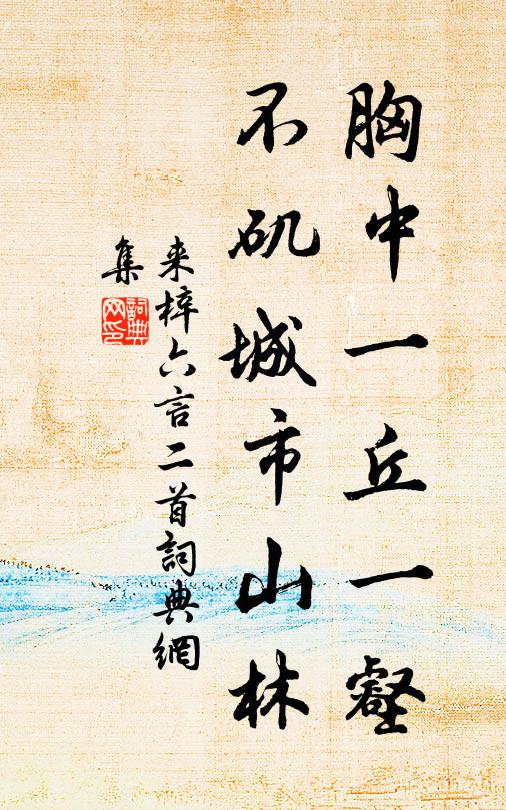 胸中一丘一壑
不矶城市山林
来梓六言二首詞典網
集
詞典网印